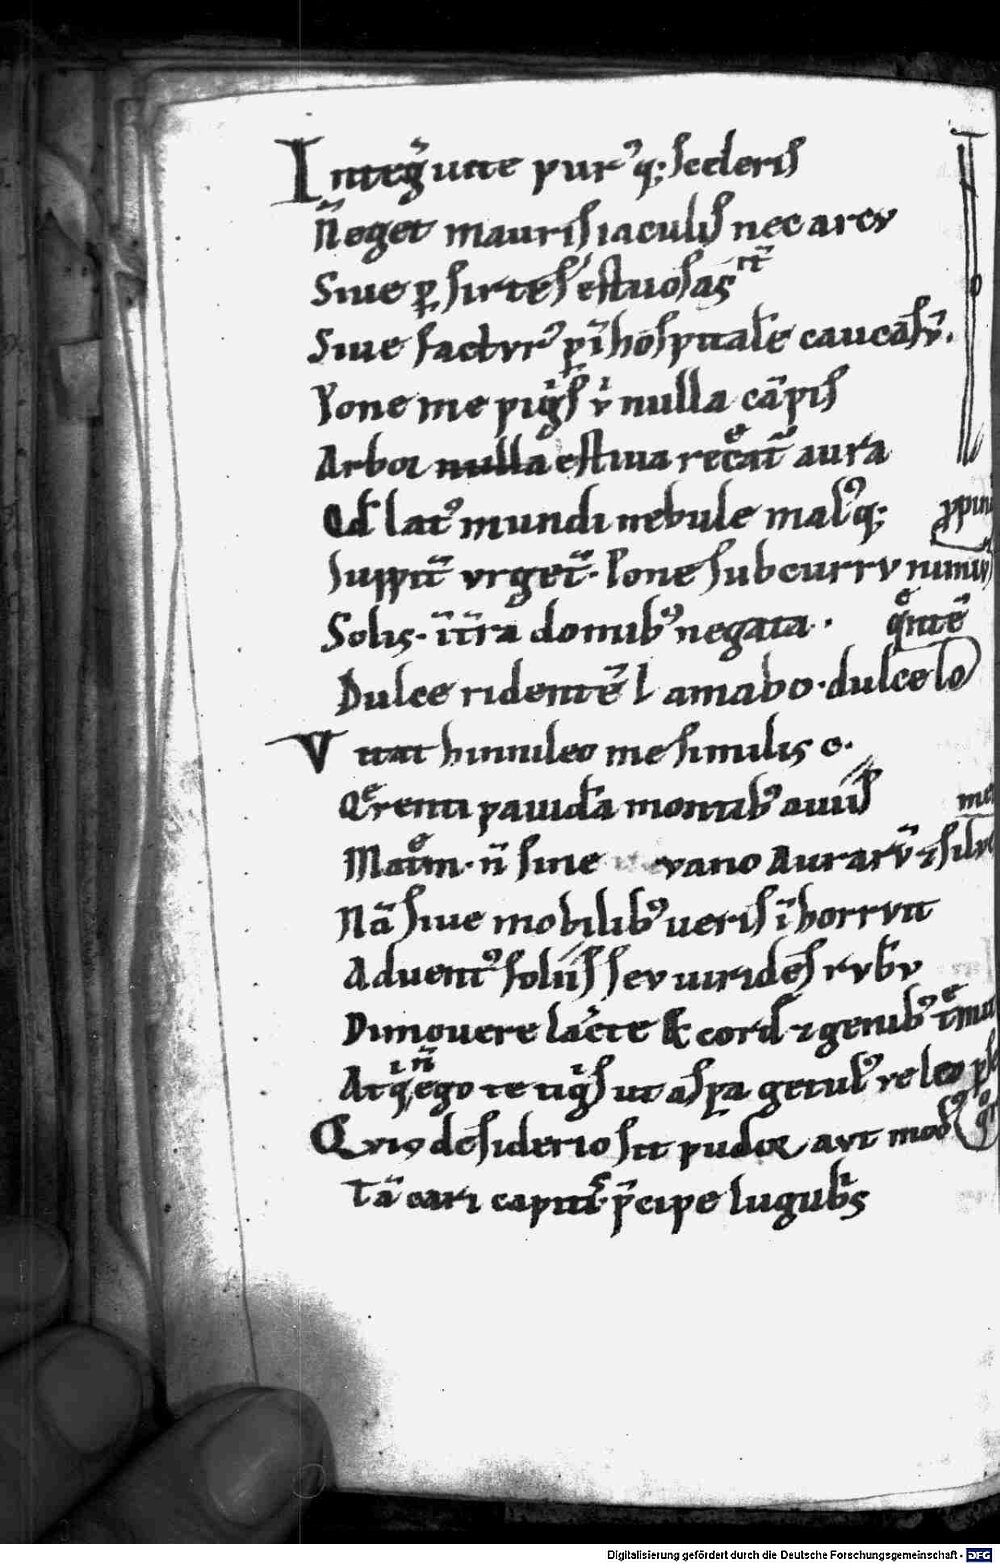 Integ̃ uite pur᾿q; sceleris
Ñ eget mauris iaculis nec arcu
Siue ꝑ sirtes estuosas
Siue factur᾿ ꝑ ĩhospitalẽ caucasũ.
Pone me pigͥs uͥ nulla cãpis
Arbor nulla estiua recͤat᷑ aura
Qđ lat᾿ mundi nebule mal᾿q;
Iuppit᷑ urget᷑. Pone sub curru nimiũ
Solis. ĩ t̃ra domib᾿ negata.
Dulce ridentẽ l amabo. dulce lo
Vitat hinnuleo me similis c.
Qͤrenti pauidã montib᾿ auiis
Matͤm. ñ sine uano Aurarũ ⁊ silue
Nã siue mobilib᾿ ueris ĩhorruit
Aduent᾿ foliis seu uirides rub̃u
Dimouere lac̃te & corđ ⁊ genib᾿
Atqͥ ñ ego te tigͥs ut asꝑa getul᾿ ue leo
Quis desiderio sit pudor aut mod᾿
Tã cari capitis. p̃cipe lugub̃s
Digitalisierung gefördert durch die Deutsche Forschungsgemeinschaft - DFG